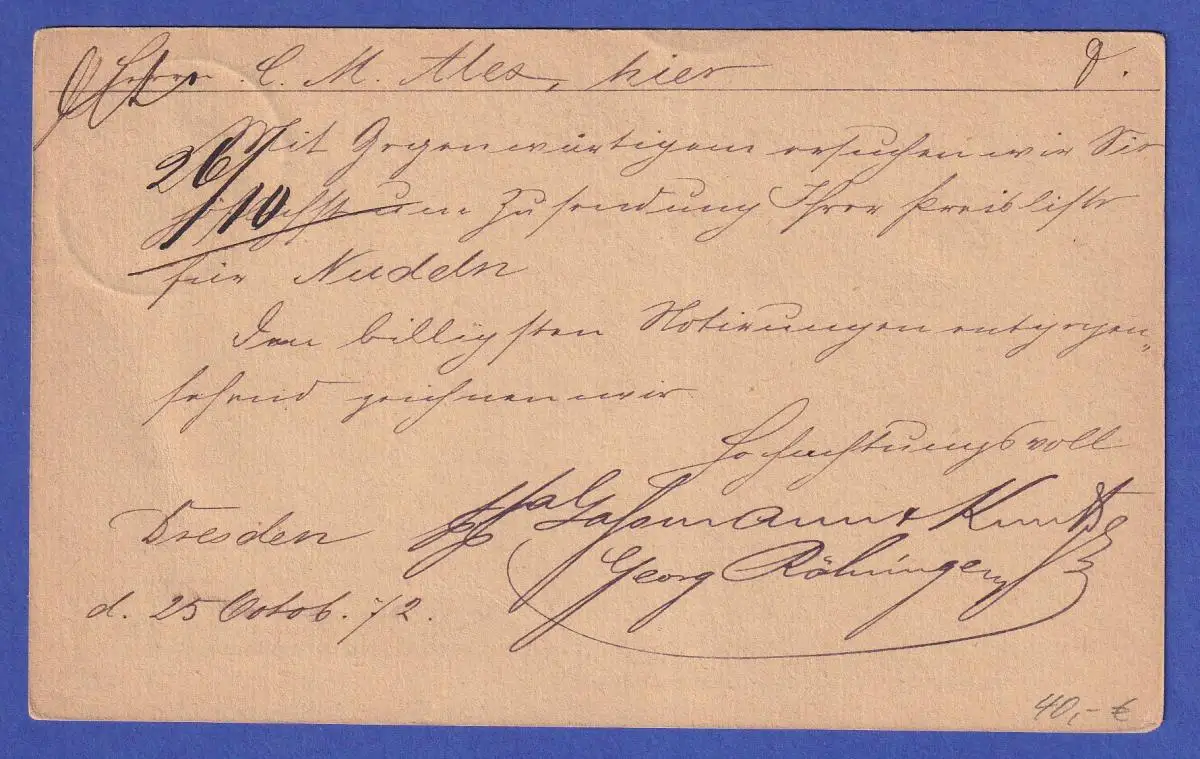 Herrn C. M. Alex, hier
26/10
Mit Gegenwärtigem ersuchen wir Sie
höflichst um Zusendung Ihrer Preisliste
für Nudeln
Den billigsten Notirungen entgegen„
sehend zeichnen wir
Hochachtungsvoll
Dresden
Georg
d. 25 Octob. 72.
40,- €